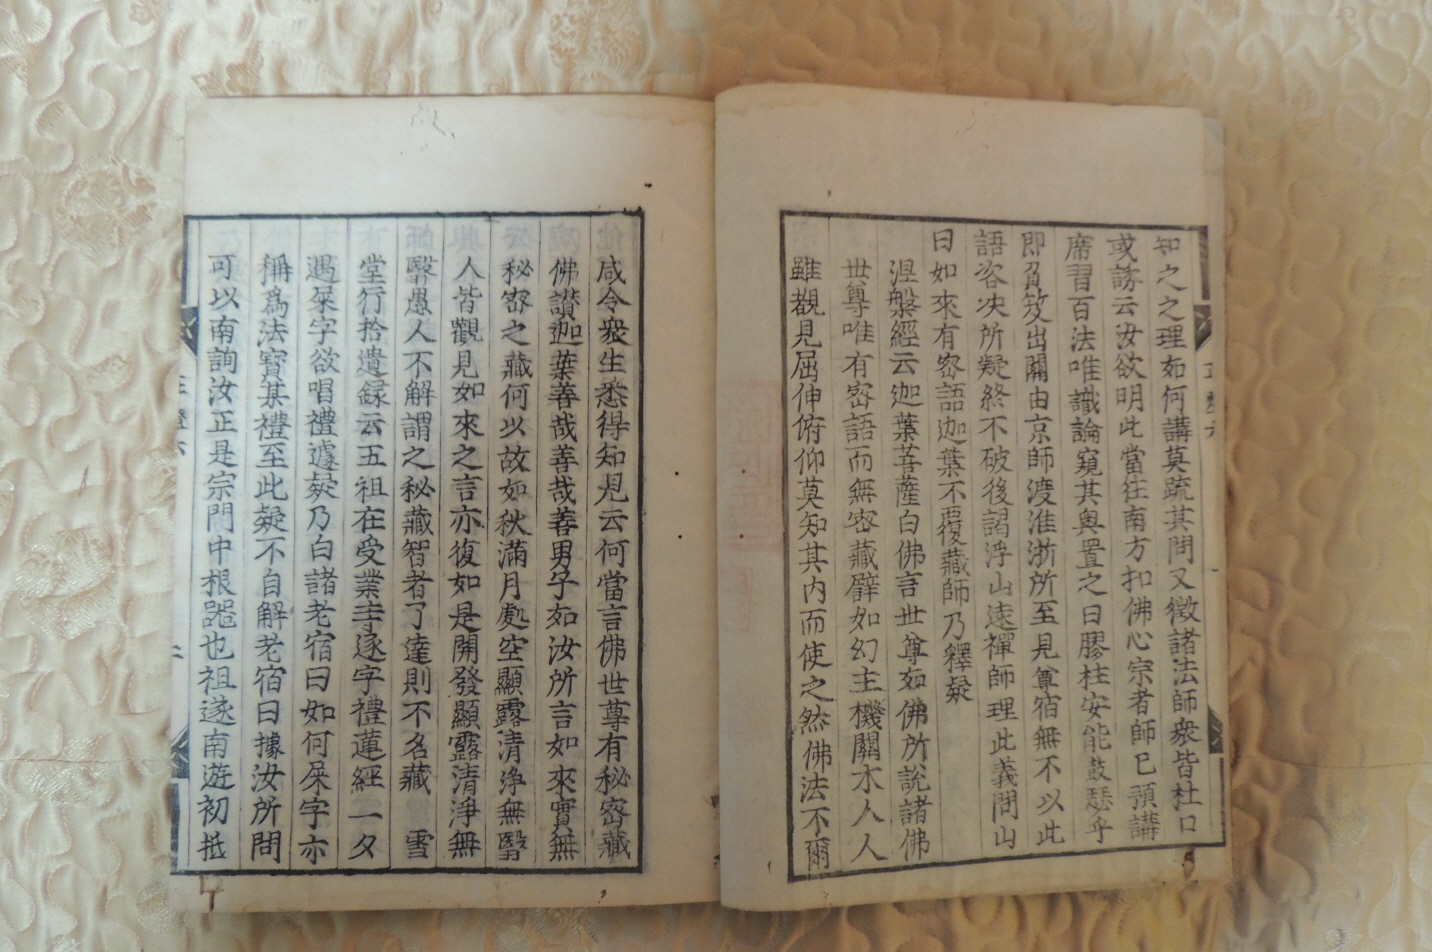 知之之理如何講莫疏其問又徵諸法師衆皆杜口
或誘云汝欲明此當往南方扣佛心宗者師已預講
席習百法唯識論窺其奧置之曰膠柱安能鼓瑟乎
即負笈出關由京師渡淮浙所至見尊宿無不以此
語咨決所疑終不破後謁浮山遠禪師理此義問山
曰如來有密語迦葉不覆藏師乃釋疑
涅槃經云迦葉菩薩白佛言世尊如佛所說諸佛
世尊唯有密語而無密藏譬如幻主機關木人人
雖觀見屈伸俯仰莫知其內而使之然佛法不爾
咸令衆生悉得知見云何當言佛世尊有秘密藏
佛讃迦葉善哉善哉善男子如汝所言如來實無
秘密之藏何以故如秋滿月處空顯露清淨無翳
人皆觀見如來之言亦復如是開發顯露清淨無
翳愚人不解謂之秘藏智者了達則不名藏 雪
堂行拾遺録云五祖在受業寺逐字禮蓮經一夕
遇屎字欲唱禮遽疑乃白諸老宿曰如何屎字亦
稱爲法寶某禮至此疑不自解老宿曰據汝所問
可以南詢汝正是宗門中根器也祖遂南遊初抵